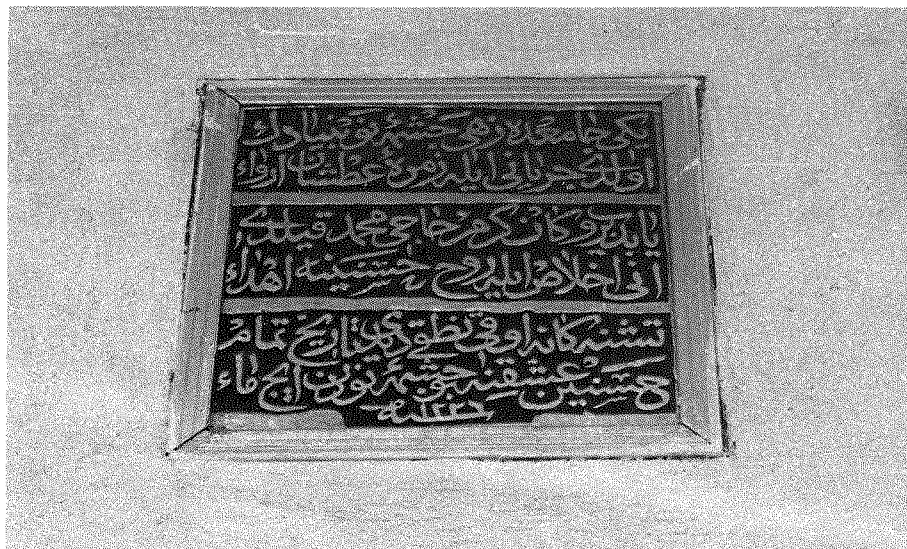 یكی جامعده زهی چشمهٔ نو بنیادك
اولدی جریانی ایله زمرهٔ عطشان ارواء
یاپدیروب كان كرم حاجی محمد قیلدی
انی اخلاص ایله روح حسینه اهداء
تشنه كانه اوقی نطقی دیدی تاریخ تمام
حسنین عشقنه بو چشمهٔ نودن ایچ ماء
سنه ١٢٢